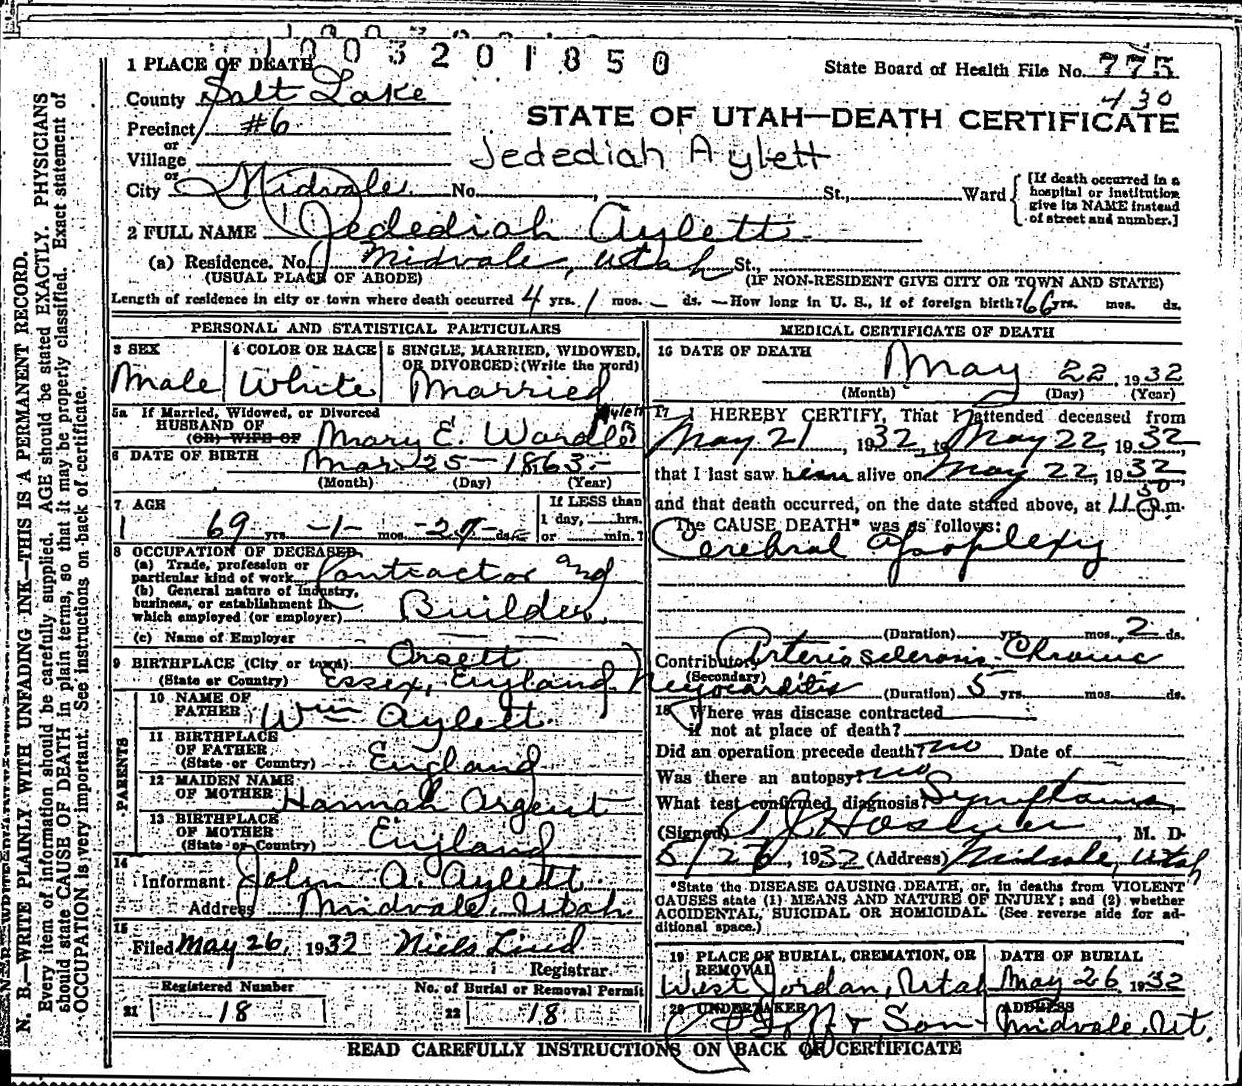 1003201850
1 PLACE OF DEATH
State Board of Health File No. 775
430
County Salt Lake
STATE OF UTAH—DEATH CERTIFICATE
Precinct #6
or
Village
Jedediah Aylett
or
City Midvale No. St., Ward
[If death occurred in a hospital or institution give its NAME instead of street and number.]
2 FULL NAME Jedediah Aylett
(a) Residence. No. Midvale, Utah St.,
(USUAL PLACE OF ABODE) (IF NON-RESIDENT GIVE CITY OR TOWN AND STATE)
Length of residence in city or town where death occurred 4 yrs. 1 mos. - ds. —How long in U. S., if of foreign birth? 66 yrs. mos. ds.
PERSONAL AND STATISTICAL PARTICULARS
3 SEX
Male
4 COLOR OR RACE
White
5 SINGLE, MARRIED, WIDOWED,
OR DIVORCED: (Write the word)
Married
5a If Married, Widowed, or Divorced
HUSBAND OF
(OR) WIFE OF Mary E. Wardle Aylett
6 DATE OF BIRTH Mar 25—1863.-
(Month) (Day) (Year)
7 AGE
69 yrs. -1- mos. -27 ds.
If LESS than
1 day, hrs.
or min.?
8 OCCUPATION OF DECEASED
(a) Trade, profession or
particular kind of work Contractor and
(b) General nature of Industry,
business, or establishment in
which employed (or employer) Builder,
(c) Name of Employer
9 BIRTHPLACE (City or town) Orsett
(State or Country) Essex, England.
PARENTS
10 NAME OF
FATHER Wm Aylett
11 BIRTHPLACE
OF FATHER
(State or Country) England
12 MAIDEN NAME
OF MOTHER Hannah Argent
13 BIRTHPLACE
OF MOTHER
(State or Country) England
14
Informant John A. Aylett
Address Midvale, Utah
15
Filed May 26, 1932 Niels Lind
Registrar.
Registered Number
21 18
No. of Burial or Removal Permit
22 18
MEDICAL CERTIFICATE OF DEATH
16 DATE OF DEATH May 22 1932
(Month) (Day) (Year)
17 I HEREBY CERTIFY, That I attended deceased from
May 21, 1932, to May 22, 1932
that I last saw him alive on May 22, 1932
and that death occurred, on the date stated above, at 11 50 m.
The CAUSE DEATH* was as follows:
Cerebral Apoplexy
(Duration) yrs. mos. 2 ds.
Contributory Arterio sclerosis, Chronic
(Secondary) Myocarditis (Duration) 5 yrs. mos. ds.
18 Where was disease contracted
if not at place of death?
Did an operation precede death? no Date of
Was there an autopsy? no
What test confirmed diagnosis? Symptoms
(Signed) M. D.
5/26, 1932 (Address) Midvale, Utah
*State the DISEASE CAUSING DEATH, or, in deaths from VIOLENT
CAUSES state (1) MEANS AND NATURE OF INJURY; and (2) whether
ACCIDENTAL, SUICIDAL OR HOMICIDAL. (See reverse side for ad-
ditional space.)
19 PLACE OF BURIAL, CREMATION, OR
REMOVAL
West Jordan, Utah
DATE OF BURIAL
May 26 1932
20 UNDERTAKER
Goff & Son
ADDRESS
Midvale, Ut.
READ CAREFULLY INSTRUCTIONS ON BACK OF CERTIFICATE
N. B.—WRITE PLAINLY WITH UNFADING INK—THIS IS A PERMANENT RECORD.
Every item of information should be carefully supplied. AGE should be stated EXACTLY. PHYSICIANS
should state CAUSE OF DEATH in plain terms, so that it may be properly classified. Exact statement of
OCCUPATION is very important. See instructions on back of certificate.